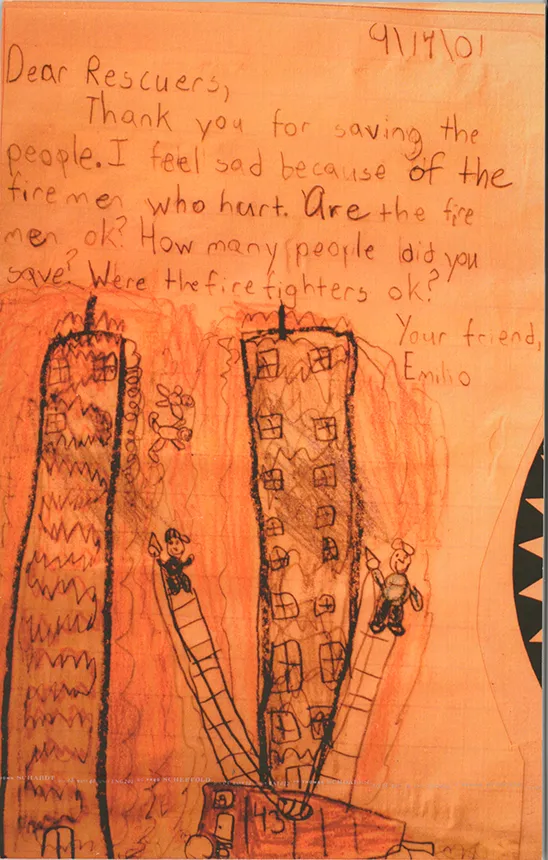 9\17\01
Dear Rescuers,
Thank you for saving the
people. I feel sad because of the
fire men who hurt. Are the fire
men ok? How many people did you
save? Were the firefighters ok?
Your friend,
Emilio
43